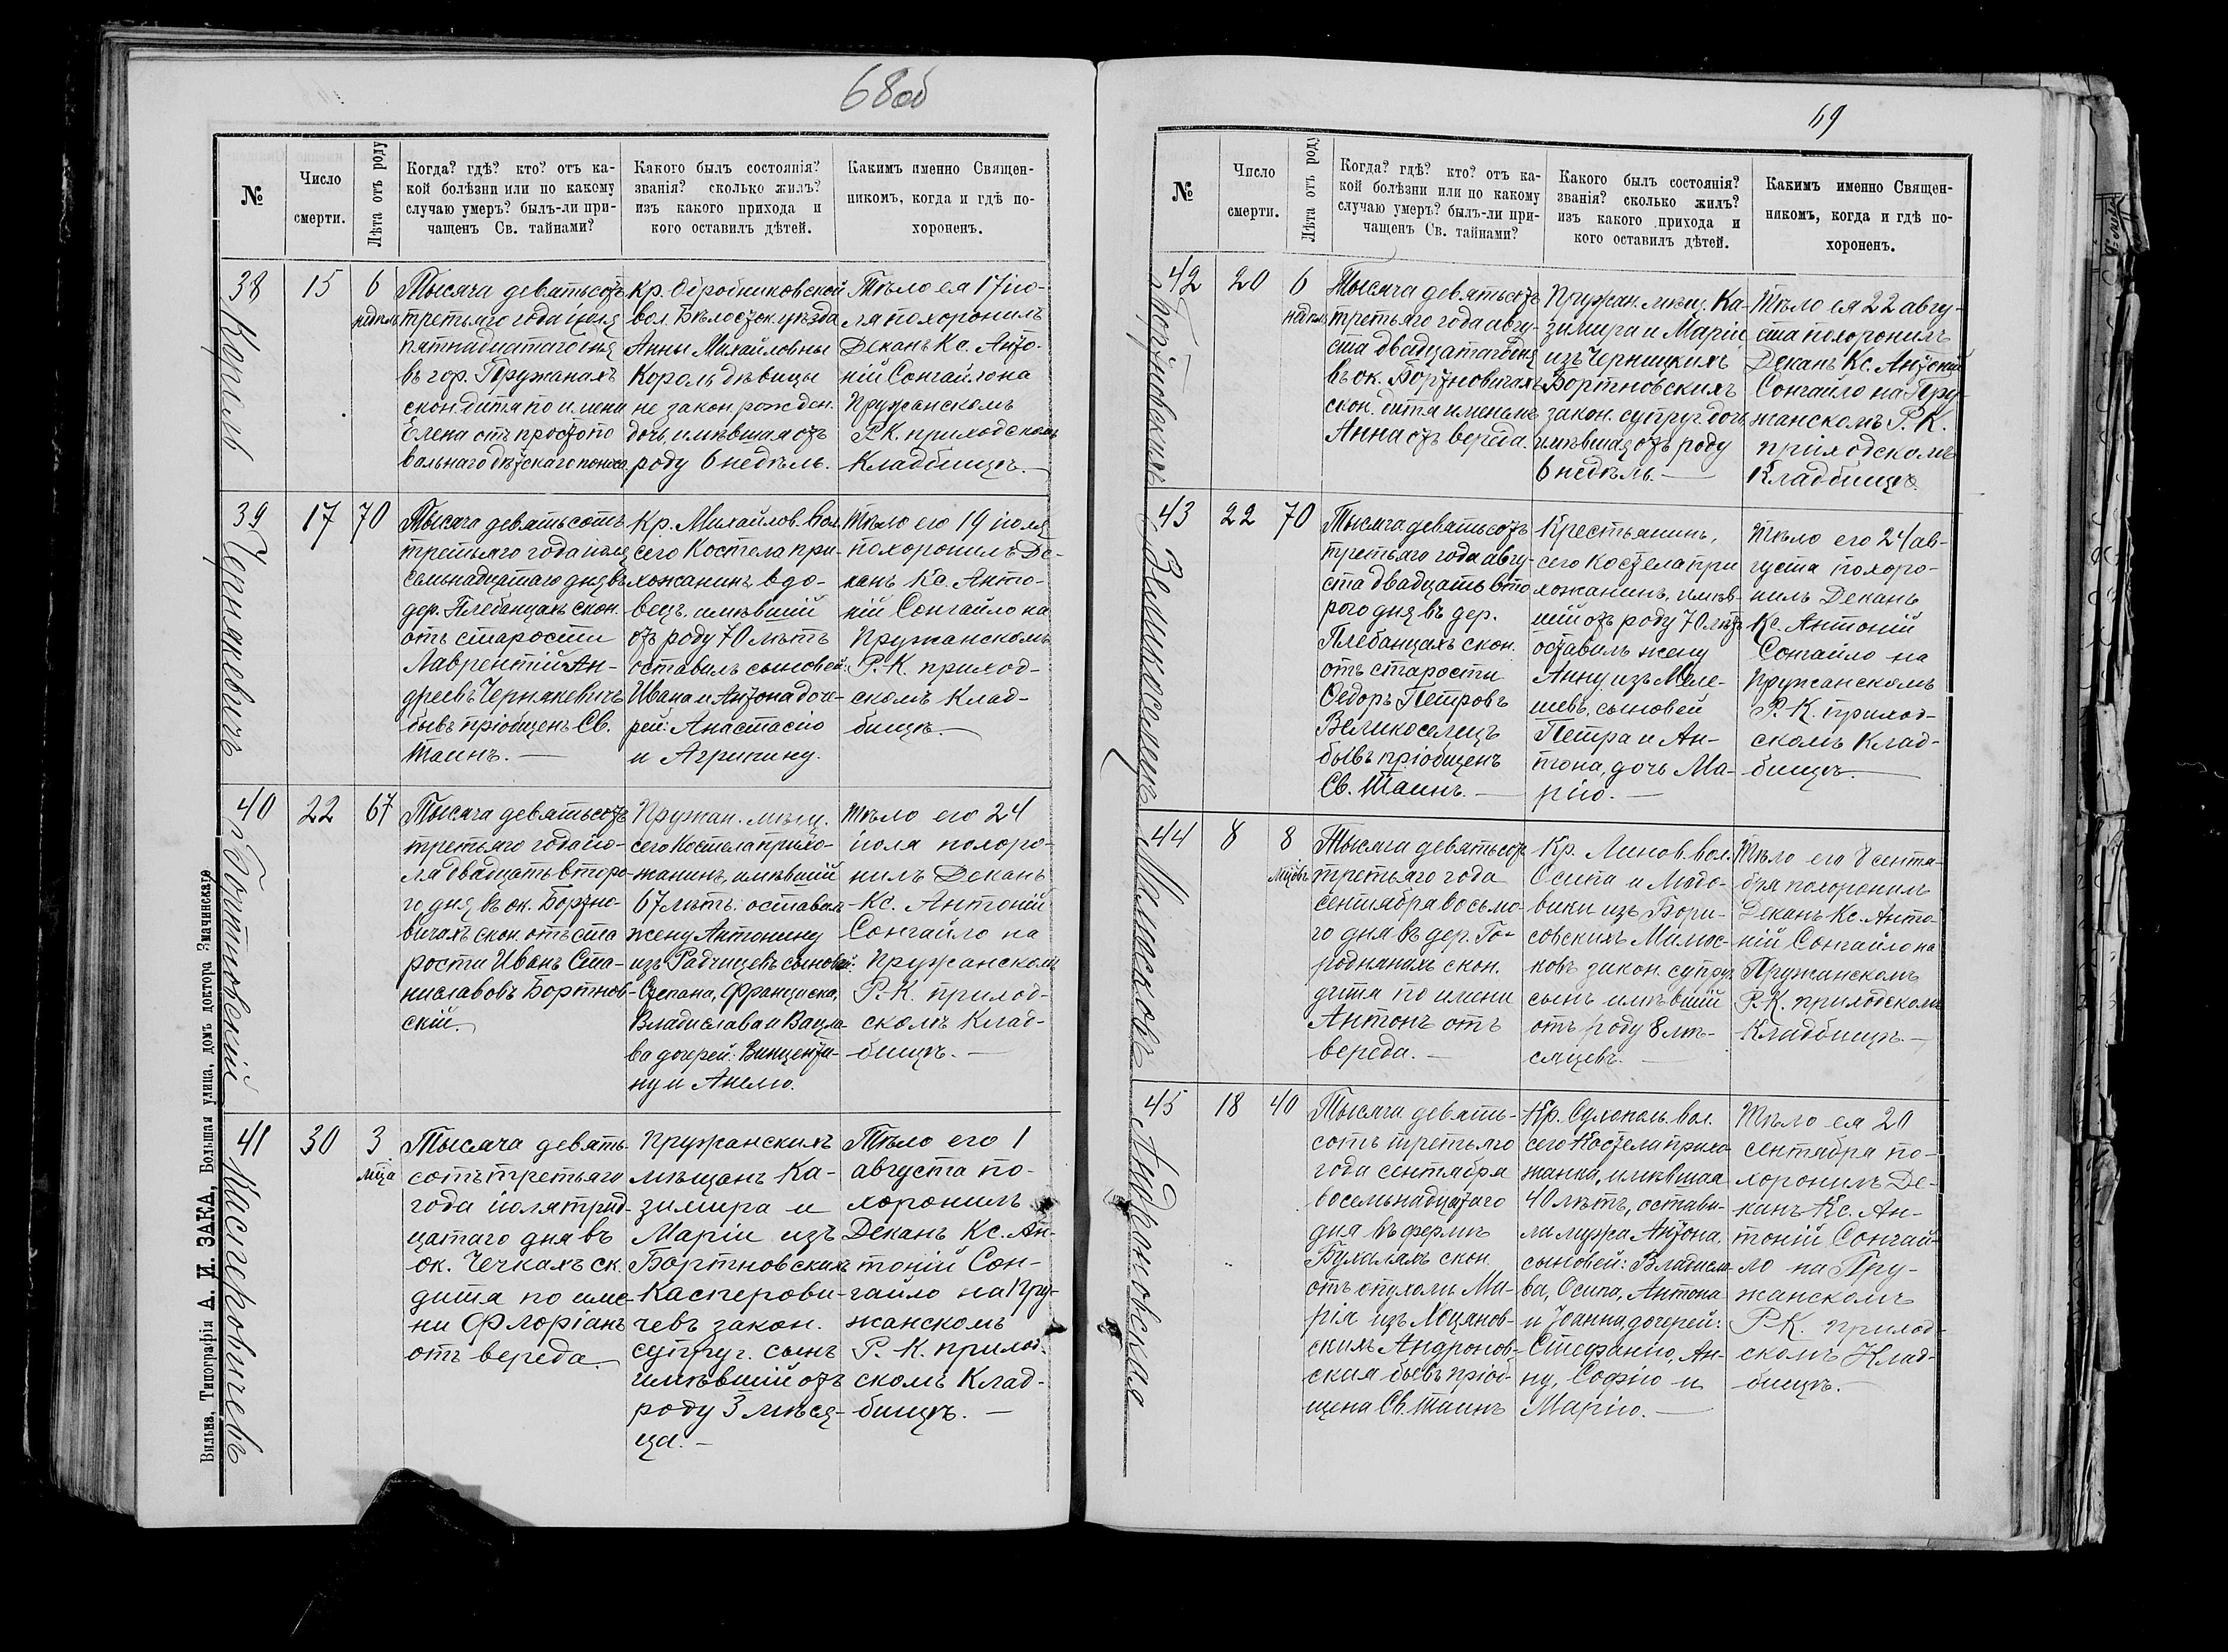 68об
№
Число
смерти.
Лѣта отъ роду
Когда? гдѣ? кто? отъ ка-
кой болѣзни или по какому
случаю умеръ? былъ-ли при-
чащенъ Св. тайнами?
Какого былъ состоянія?
званія? сколько жилъ?
изъ какого прихода и
кого оставилъ дѣтей.
Какимъ именно Священ-
никомъ, когда и гдѣ по-
хороненъ.
38
Король
15
6
недѣль
Тысяча девятьсотъ
третьяго года іюля
пятнадцатаго дня
въ гор. Пружанахъ
скон. дитя по имени
Елена отъ простого
вальнаго дѣтскаго поноса
Кр. Обробниковской
вол. Бѣлосток. уѣзда
Анны Михайловны
Король дѣвицы
не закон. рожден.
дочь, имѣвшая отъ
роду 6 недѣль.
Тѣло ея 17 ію-
ля похоронилъ
Деканъ Кс. Анто-
ній Сонгайло на
Пружанскомъ
Р.К. приходскомъ
Кладбищѣ.
39
Чернякевичъ
17
70
Тысяча девятьсотъ
третьяго года іюля
семьнадцатаго дня въ
дер. Плебанцахъ скон.
отъ старости
Лаврентій Ан-
дреевъ Чернякевичъ
бывъ пріобщенъ Св.
Таинъ.
Кр. Михайлов. вол.
сего Костела при-
хожанинъ вдо-
вецъ, имѣвшій
отъ роду 70 лѣтъ
оставилъ сыновей:
Ивана и Антона доче-
рей: Анастасію
и Агрипину.
Тѣло его 19 іюля
похоронилъ Де-
канъ Кс. Анто-
ній Сонгайло на
Пружанскомъ
Р.К. приход-
скомъ Клад-
бищѣ.
40
Бортновскій
22
67
Тысяча девятьсотъ
третьяго года ію-
ля двадцать второ-
го дня въ ок. Бортно-
вичахъ скон. отъ ста
рости Иванъ Ста-
ниславовъ Бортнов-
скій.
Пружан. мѣщ.
сего Костела прихо-
жанинъ, имѣвшій
67 лѣтъ. оставилъ
жену Антонину
изъ Радчицевъ сыновей:
Степана, Франциска,
Владислава и Вацла-
ва дочерей: Винценти-
ну и Анелю.
Тѣло его 24
іюля похоро-
нилъ Деканъ
Кс. Антоній
Сонгайло на
Пружанскомъ
Р.К. приход-
скомъ Клад-
бищѣ.
41
Касперовичевъ
30
3
мѣца
Тысяча девять
сотъ третьяго
года іюля трид-
цатаго дня въ
ок. Чечкахъ ск.
дитя по име-
ни Флоріанъ
отъ вереда.
Пружанскихъ
мѣщанъ Ка-
зимира и
Маріи изъ
Бортновскихъ
Касперови-
чевъ закон.
супруг. сынъ
имѣвшій отъ
роду 3 мѣся-
ца.
Тѣло его 1
августа по-
хоронилъ
Деканъ Кс. Ан-
тоній Сон-
гайло на Пру-
жанскомъ
Р. К. приход-
скомъ Клад-
бищѣ.
Вильна, Типографія А. И. ЗАКА, Большая улица, домъ доктора Змачинскаго
69
№
Число
смерти.
Лѣта отъ роду
Когда? гдѣ? кто? отъ ка-
кой болѣзни или по какому
случаю умеръ? былъ-ли при-
чащенъ Св. тайнами?
Какого былъ состоянія?
званія? сколько жилъ?
изъ какого прихода и
кого оставилъ дѣтей.
Какимъ именно Священ-
никомъ, когда и гдѣ по-
хороненъ.
42
Бортновскихъ
20
6
недѣль
Тысяча девятьсотъ
третьяго года авгу-
ста двадцатаго дня
въ ок. Бортновичахъ
скон. дитя именемъ
Анна отъ вереда.
Пружан. мѣщ. Ка-
зимира и Маріи
изъ Черницкихъ
Бортновскихъ
закон. супруг. дочь
имѣвшая отъ роду
6 недѣль.
Тѣло ея 22 авгу-
ста похоронилъ
Деканъ Кс. Антоній
Сонгайло на Пру-
жанскомъ Р.К.
приходскомъ
Кладбищѣ.
43
Великоселецъ
22
70
Тысяча девятьсотъ
третьяго года авгу-
ста двадцать вто
рого дня въ дер.
Плебанцахъ скон.
отъ старости
Ѳедоръ Петровъ
Великоселецъ
бывъ пріобщенъ
Св. Таинъ.
Крестьянинъ,
сего костела при
хожанинъ, имѣв-
шій отъ роду 70 лѣтъ
оставилъ жену
Анну изъ Меле-
шевъ, сыновей
Петра и Ан-
тона, дочь Ма-
рію.
Тѣло его 24 ав-
густа похоро-
нилъ Деканъ
Кс. Антоній
Сонгайло на
Пружанскомъ
Р. К. приход-
скомъ Клад-
бищѣ.
44
Милюсковъ
8
8
мцовъ
Тысяча девятьсот
третьяго года
сентября восьмо-
го дня въ дер. Го-
роднянахъ скон.
дитя по имени
Антонъ отъ
вереда.
Кр. Линов. вол.
Осипа и Людо-
вики изъ Бори-
совскихъ Милюс-
ковъ закон. супруг.
сынъ имѣвшій
отъ роду 8 мѣ-
сяцевъ.
Тѣло его 8 сентя-
бря похоронилъ
Деканъ Кс. Анто-
ній Сонгайло на
Пружанскомъ
Р.К. приходскомъ
Кладбищѣ.
45
Андроновская
18
40
Тысяча девять-
сотъ третьяго
года сентября
восемьнадцатаго
дня въ фермѣ
скон.
отъ опухоли Ма-
рія изъ Хоцянов-
скихъ Андронов-
ская бывъ пріоб-
щена Св. Таинъ
Кр. Сухополь. вол.
сего Костела прихо
жанка, имѣвшая
40 лѣтъ, остави-
ла мужа Антона,
сыновей: Владисла-
ва, Осипа, Антона
и Іоанна дочерей:
Стефанію, Ан-
ну, Софію и
Марію.
Тѣло ея 20
сентября по-
хоронилъ Де-
канъ Кс. Ан-
тоній Сонгай-
ло на Пру-
жанскомъ
Р.К. приход-
скомъ Клад-
бищѣ.